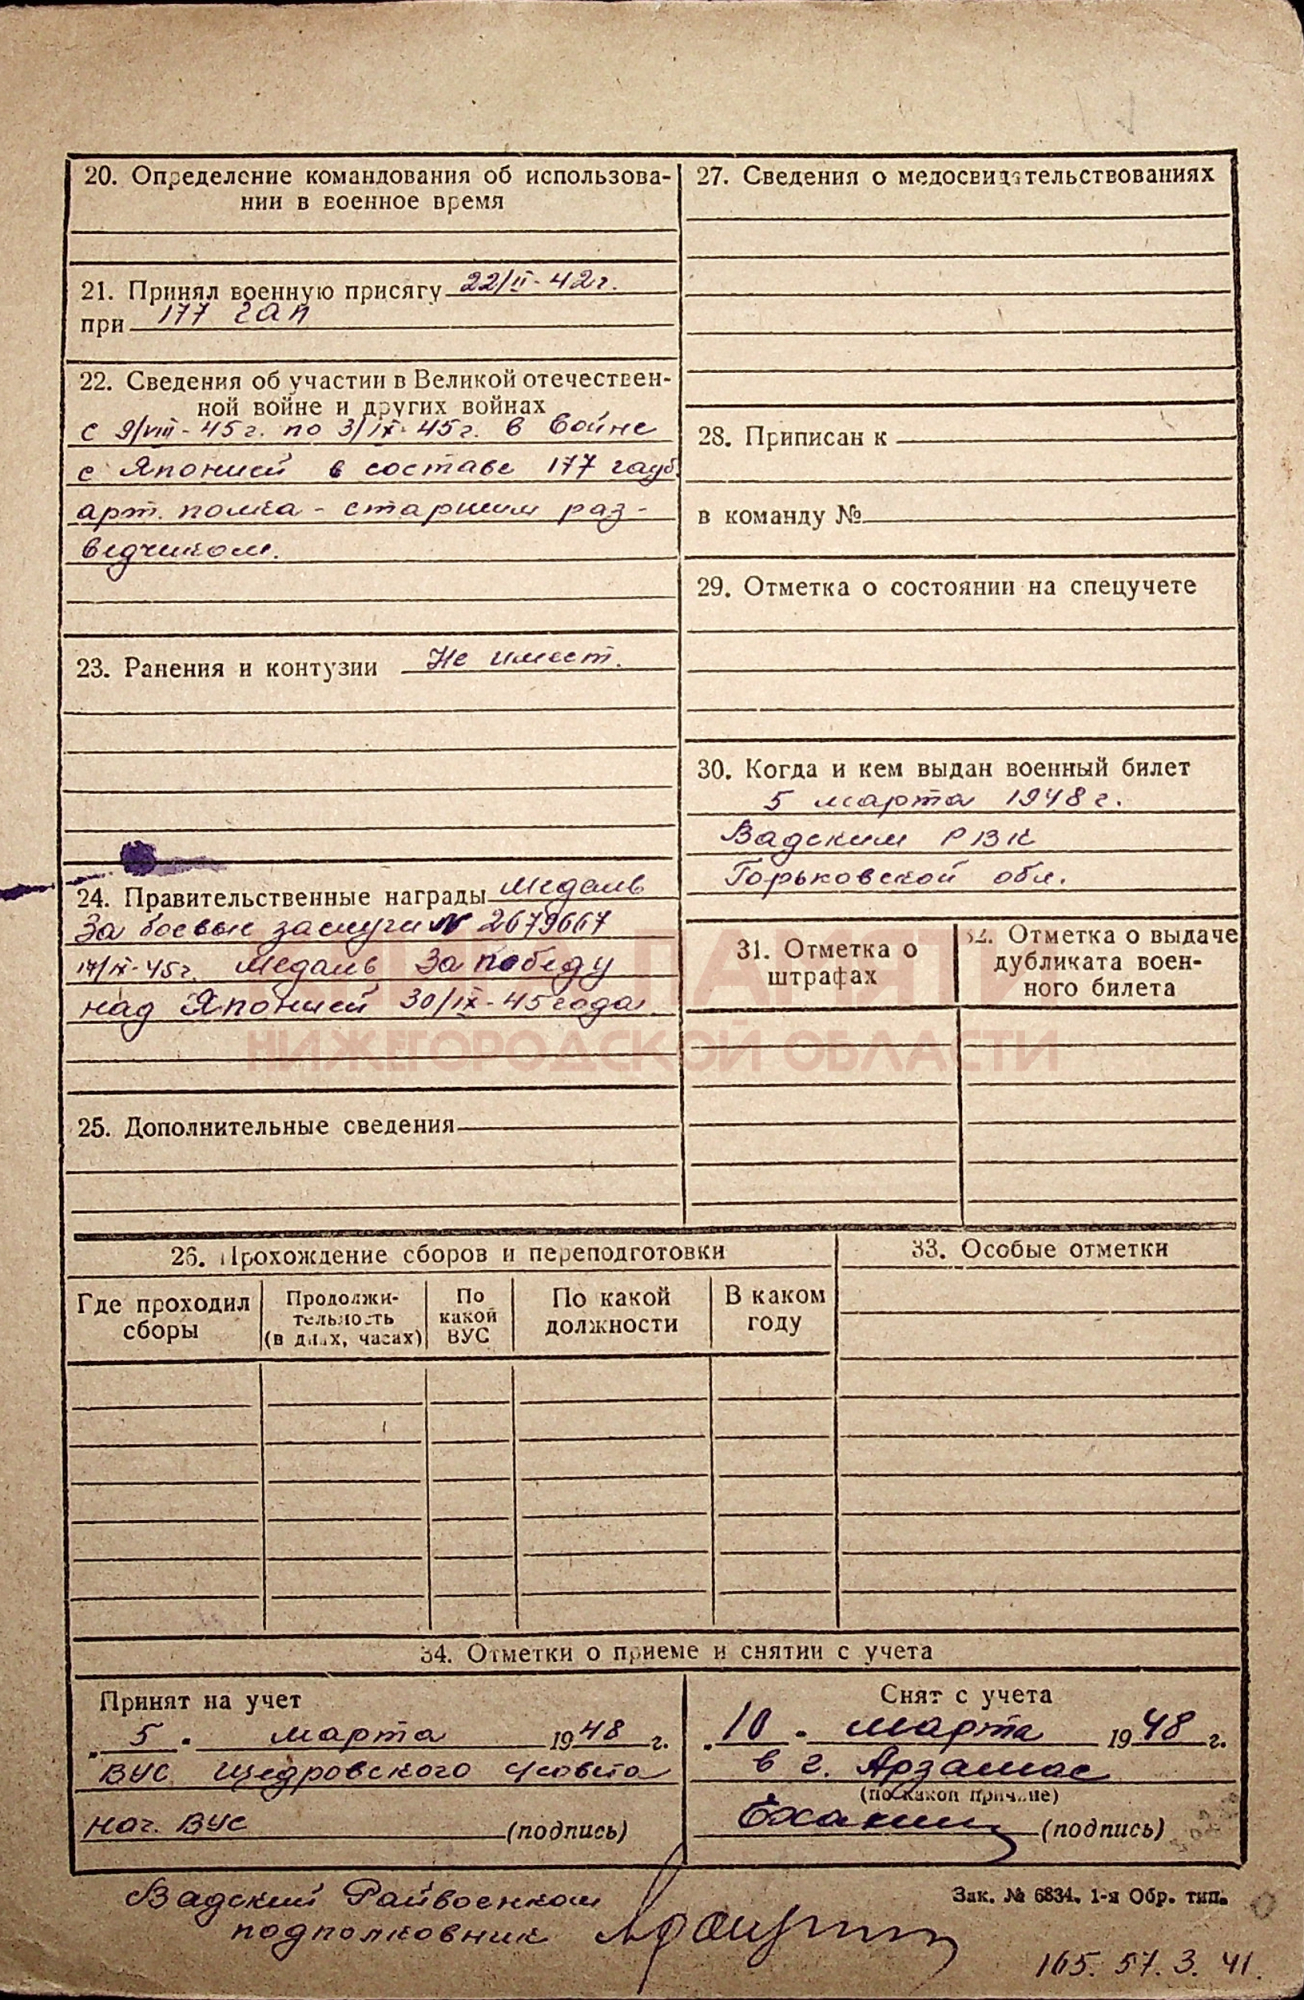 20. Определение командования об использова-
нии в военное время
21. Принял военную присягу 22/II-42г.
при 177 гап
22. Сведения об участии в Великой отечествен-
ной войне и других войнах
с 9/VIII-45г. по 3/IX-45г. в войне
с Японией в составе 177 гауб.
арт. полка - старшим раз-
ведчиком.
23. Ранения и контузии Не имеет.
24. Правительственные награды Медаль
За боевые заслуги № 2679667
17/IX-45г. Медаль За победу
над Японией 30/IX-45 года.
25. Дополнительные сведения
27. Сведения о медосвидетельствованиях
28. Приписан к
в команду №
29. Отметка о состоянии на спецучете
30. Когда и кем выдан военный билет
5 марта 1948 г.
Вадским РВК
Горьковской обл.
31. Отметка о
штрафах
32. Отметка о выдаче
дубликата воен-
ного билета
КНИГА ПАМЯТИ
НИЖЕГОРОДСКОЙ ОБЛАСТИ
26. Прохождение сборов и переподготовки
Где проходил
сборы
Продолжи-
тельность
(в днях, часах)
По
какой
ВУС
По какой
должности
В каком
году
33. Особые отметки
34. Отметки о приеме и снятии с учета
Принят на учет
„ 5 " марта 1948 г.
ВУС Щедровского с/совета
нач. ВУС (подпись)
Снят с учета
„ 10 " марта 1948 г.
в г. Арзамас
(по какой причине)
(подпись)
Вадский Райвоенком
подполковник
Зак. № 6834. 1-я Обр. тип.
165. 57. 3. 41.